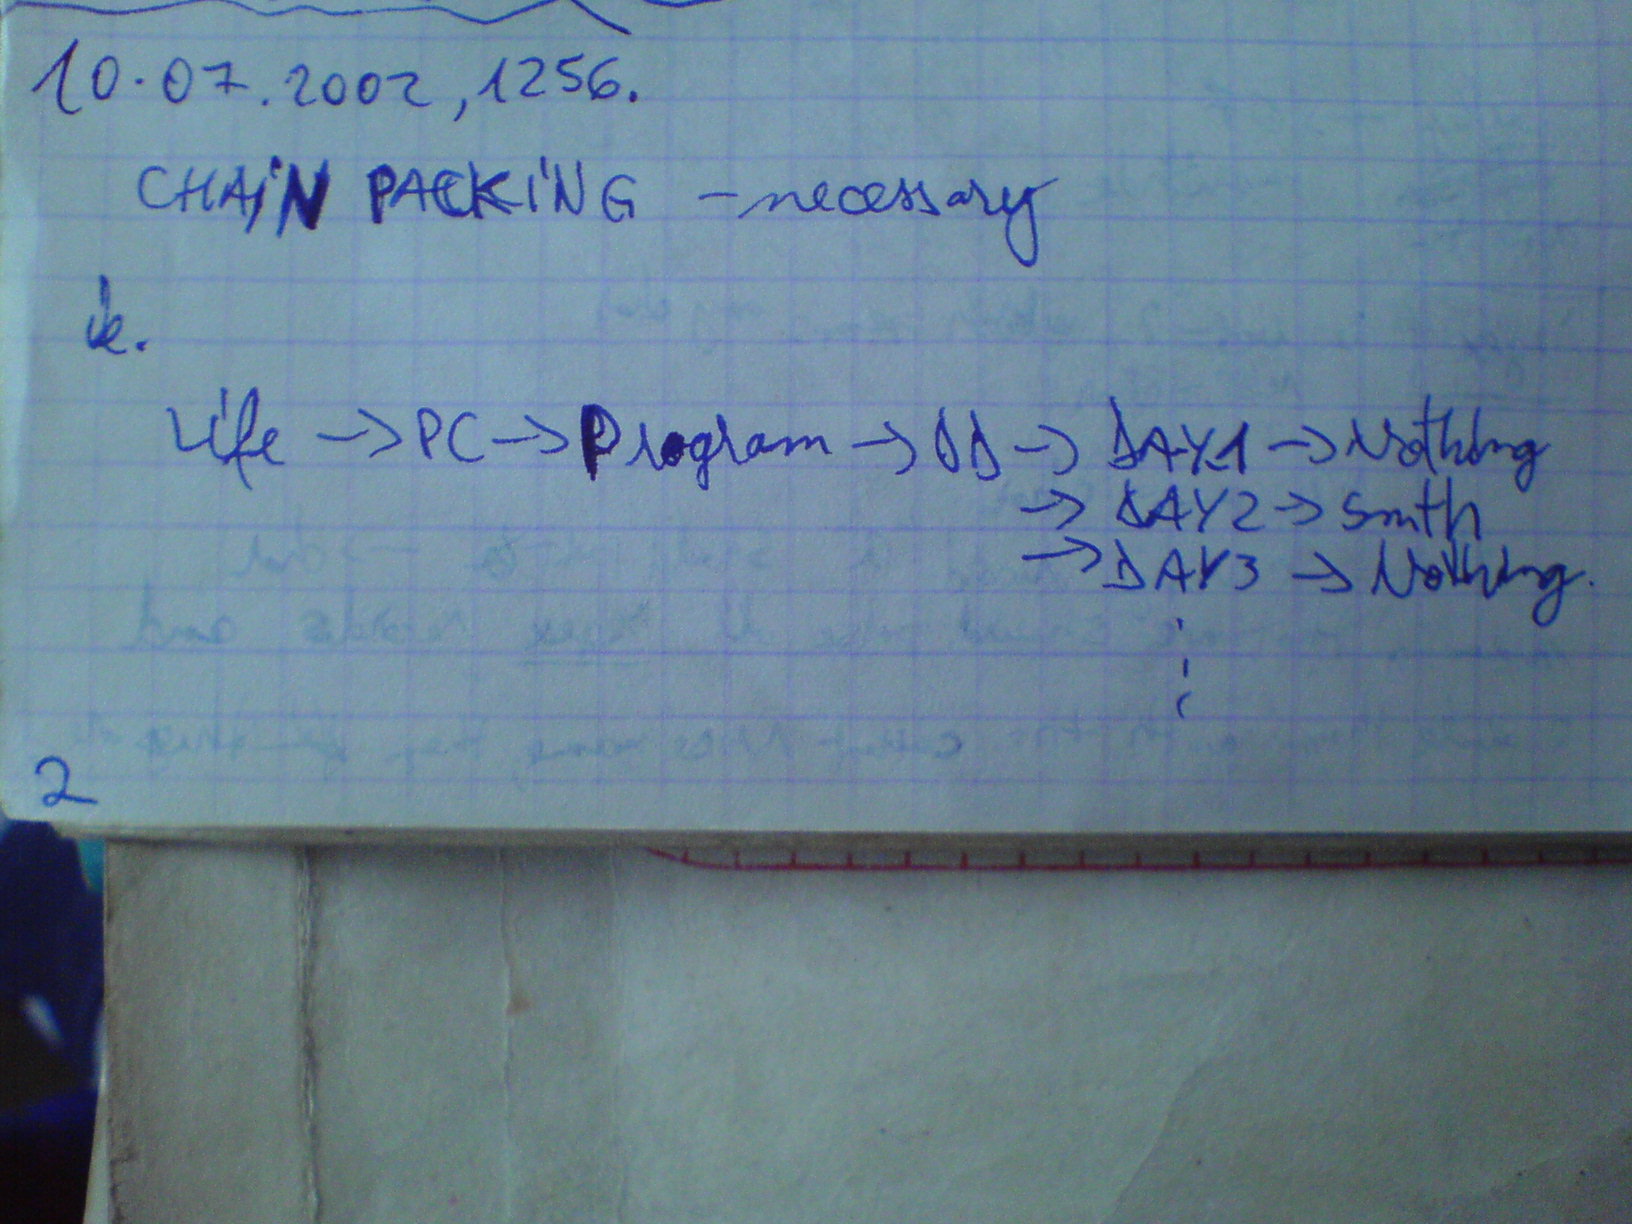 10.07.2002, 1256.
CHAiN PACKiNG - necessary
ie.
Life → PC → Program → DD → DAY1 → Nothing
→ DAY2 → Smth
→ DAY3 → Nothing.
2